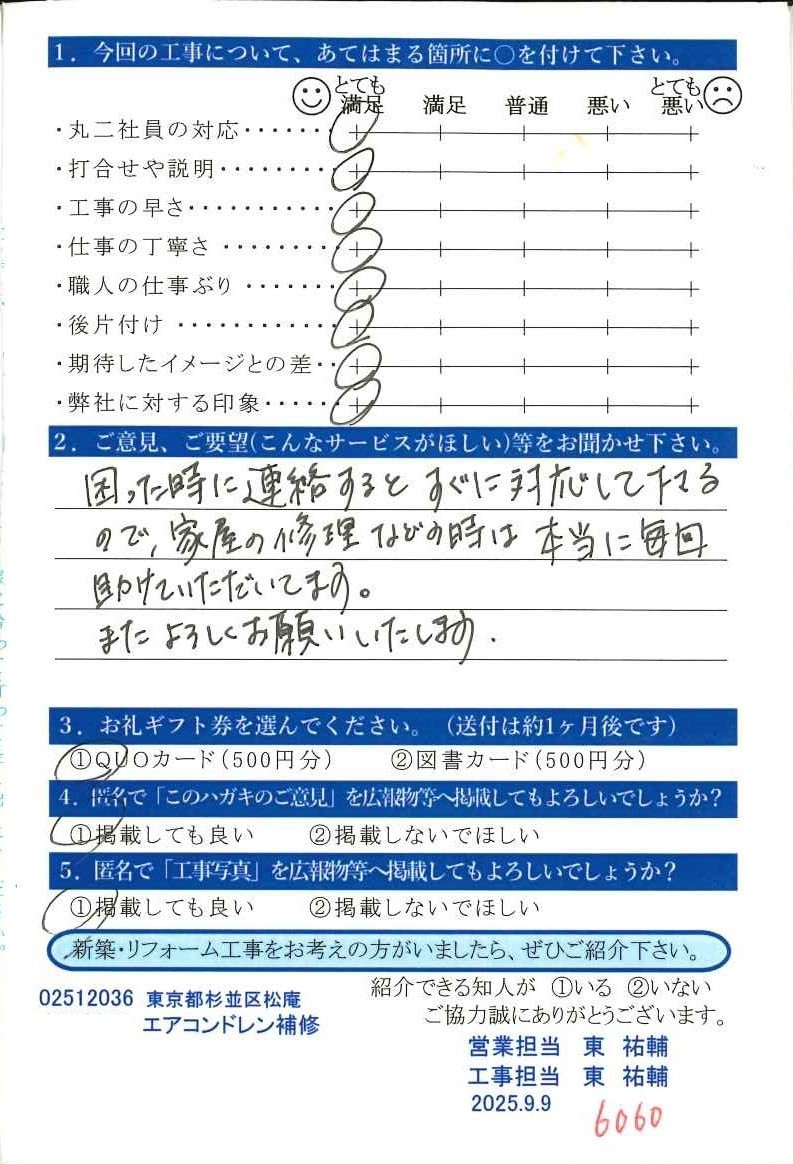 1．今回の工事について、あてはまる箇所に○を付けて下さい。
とても満足 満足 普通 悪い とても悪い
・丸二社員の対応・・・・・・・
・打合せや説明・・・・・・・・・
・工事の早さ・・・・・・・・・・・
・仕事の丁寧さ・・・・・・・・
・職人の仕事ぶり・・・・・・・
・後片付け・・・・・・・・・・・・
・期待したイメージとの差・・
・弊社に対する印象・・・・・
2．ご意見、ご要望(こんなサービスがほしい)等をお聞かせ下さい。
困った時に連絡するとすぐに対応して下さる
ので、家屋の修理などの時は本当に毎回
助けていただいてます。
またよろしくお願いいたします.
3．お礼ギフト券を選んでください。（送付は約1ヶ月後です）
①QUOカード(500円分) ②図書カード(500円分)
4．匿名で「このハガキのご意見」を広報物等へ掲載してもよろしいでしょうか？
①掲載しても良い ②掲載しないでほしい
5．匿名で「工事写真」を広報物等へ掲載してもよろしいでしょうか？
①掲載しても良い ②掲載しないでほしい
新築・リフォーム工事をお考えの方がいましたら、ぜひご紹介下さい。
紹介できる知人が ①いる ②いない
02512036 東京都杉並区松庵
ご協力誠にありがとうございます。
エアコンドレン補修
営業担当 東 祐輔
工事担当 東 祐輔
2025.9.9
6060